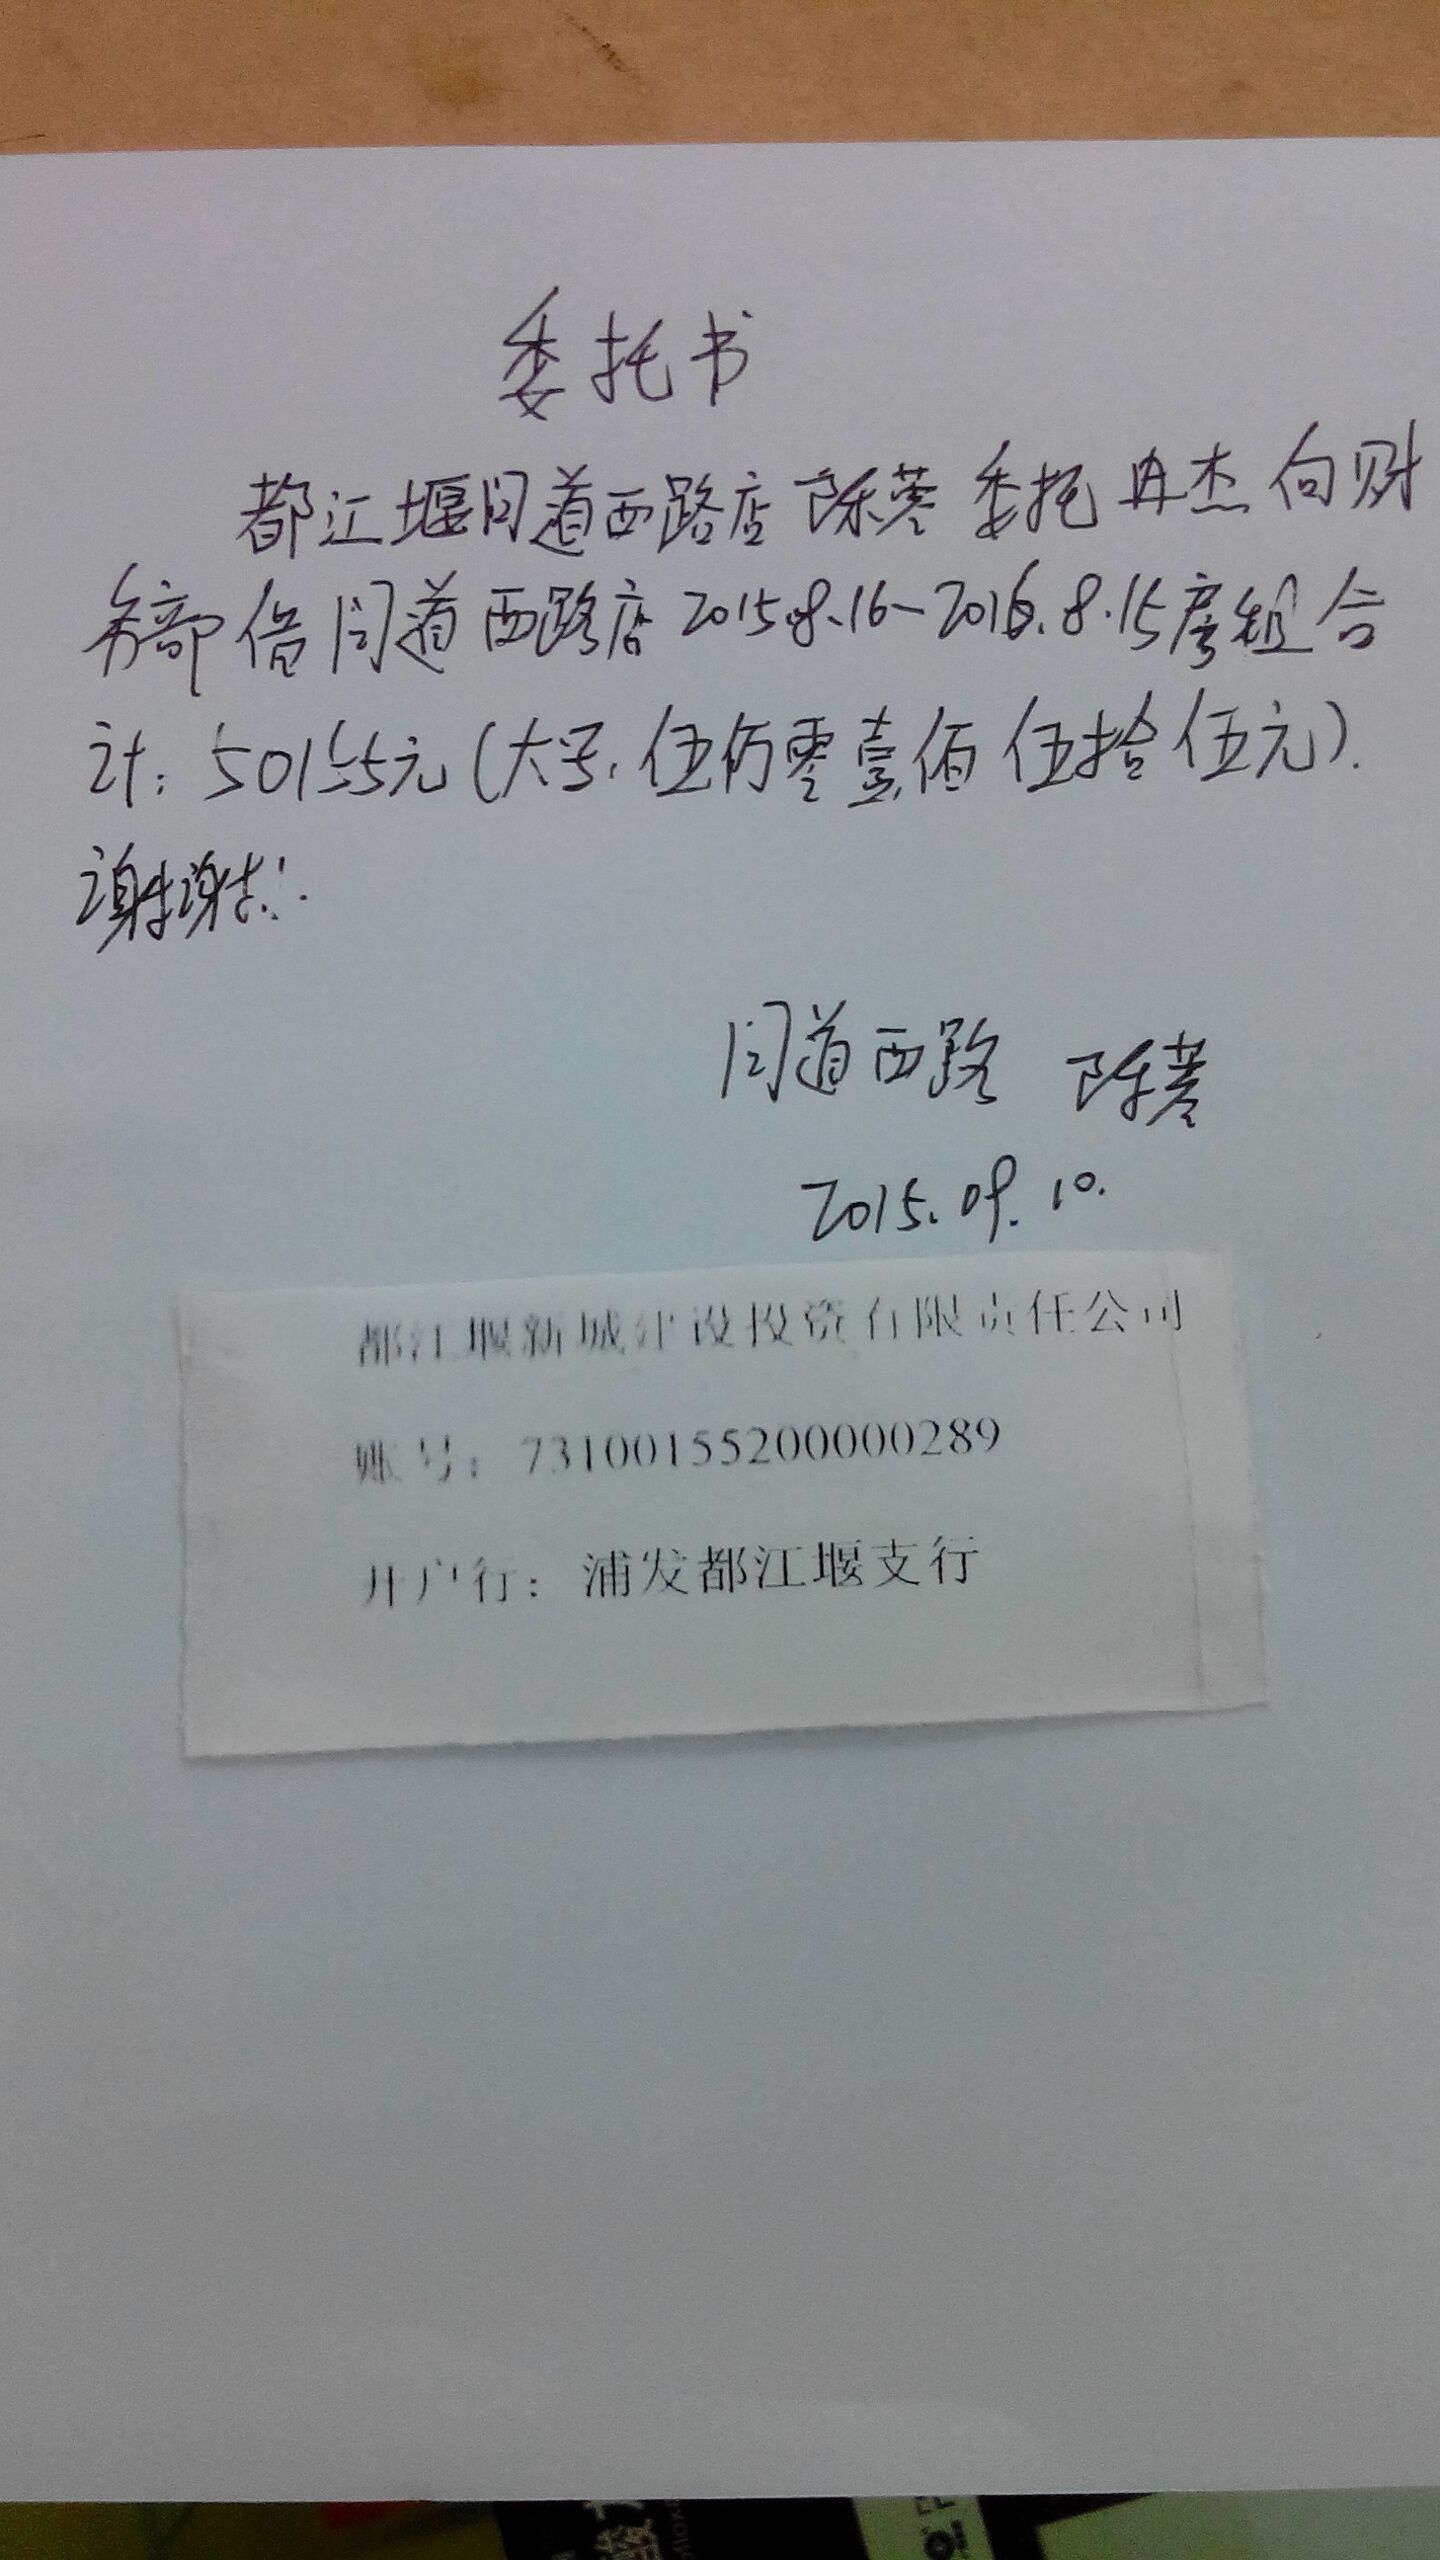 委托书
都江堰问道西路店陈蓉委托冉杰向财
务部借问道西路店2015.8.16-2016.8.15房租合
计：50155元(大写：伍仟零壹佰伍拾伍元).
谢谢!
问道西路 陈蓉
2015.09.10.
都江堰新城建设投资有限责任公司
账号：73100155200000289
开户行：浦发都江堰支行